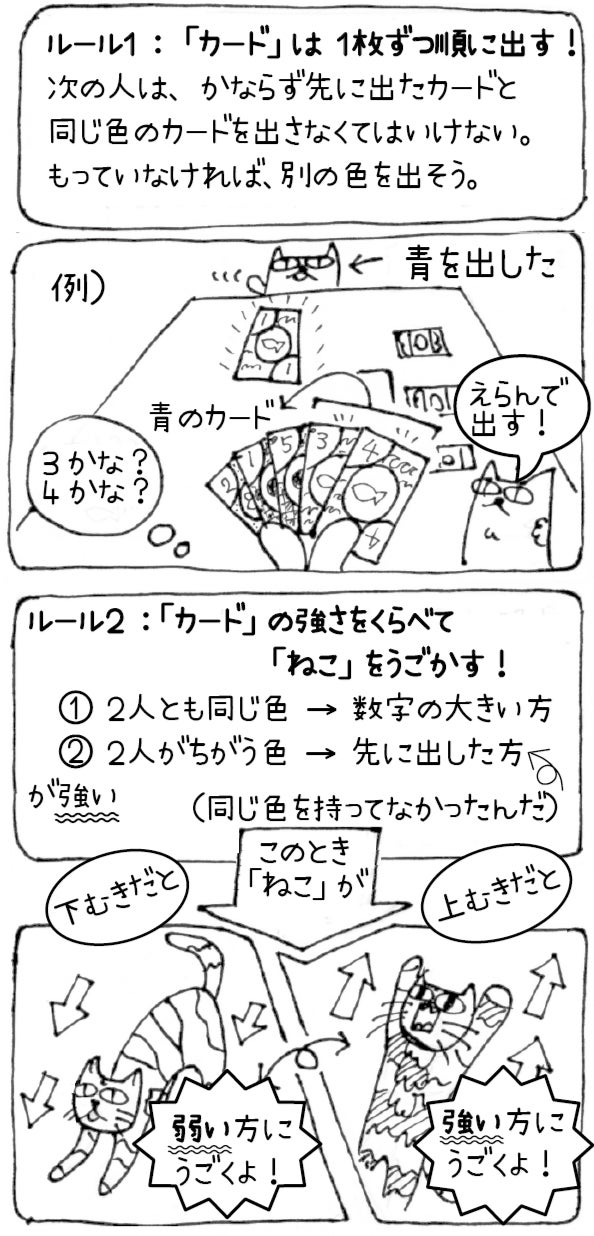 ルール1：「カード」は 1枚ずつ順に出す！
次の人は、かならず先に出たカードと
同じ色のカードを出さなくてはいけない。
もっていなければ、別の色を出そう。
例）
← 青を出した
青のカード
えらんで
出す！
3かな？
4かな？
2
1
5
3
4
4
1
1
ルール2：「カード」の強さをくらべて
「ねこ」をうごかす！
① 2人とも同じ色 → 数字の大きい方
② 2人がちがう色 → 先に出した方
が強い
（同じ色を持ってなかったんだ）
このとき
「ねこ」が
下むきだと
上むきだと
弱い方に
うごくよ！
強い方に
うごくよ！